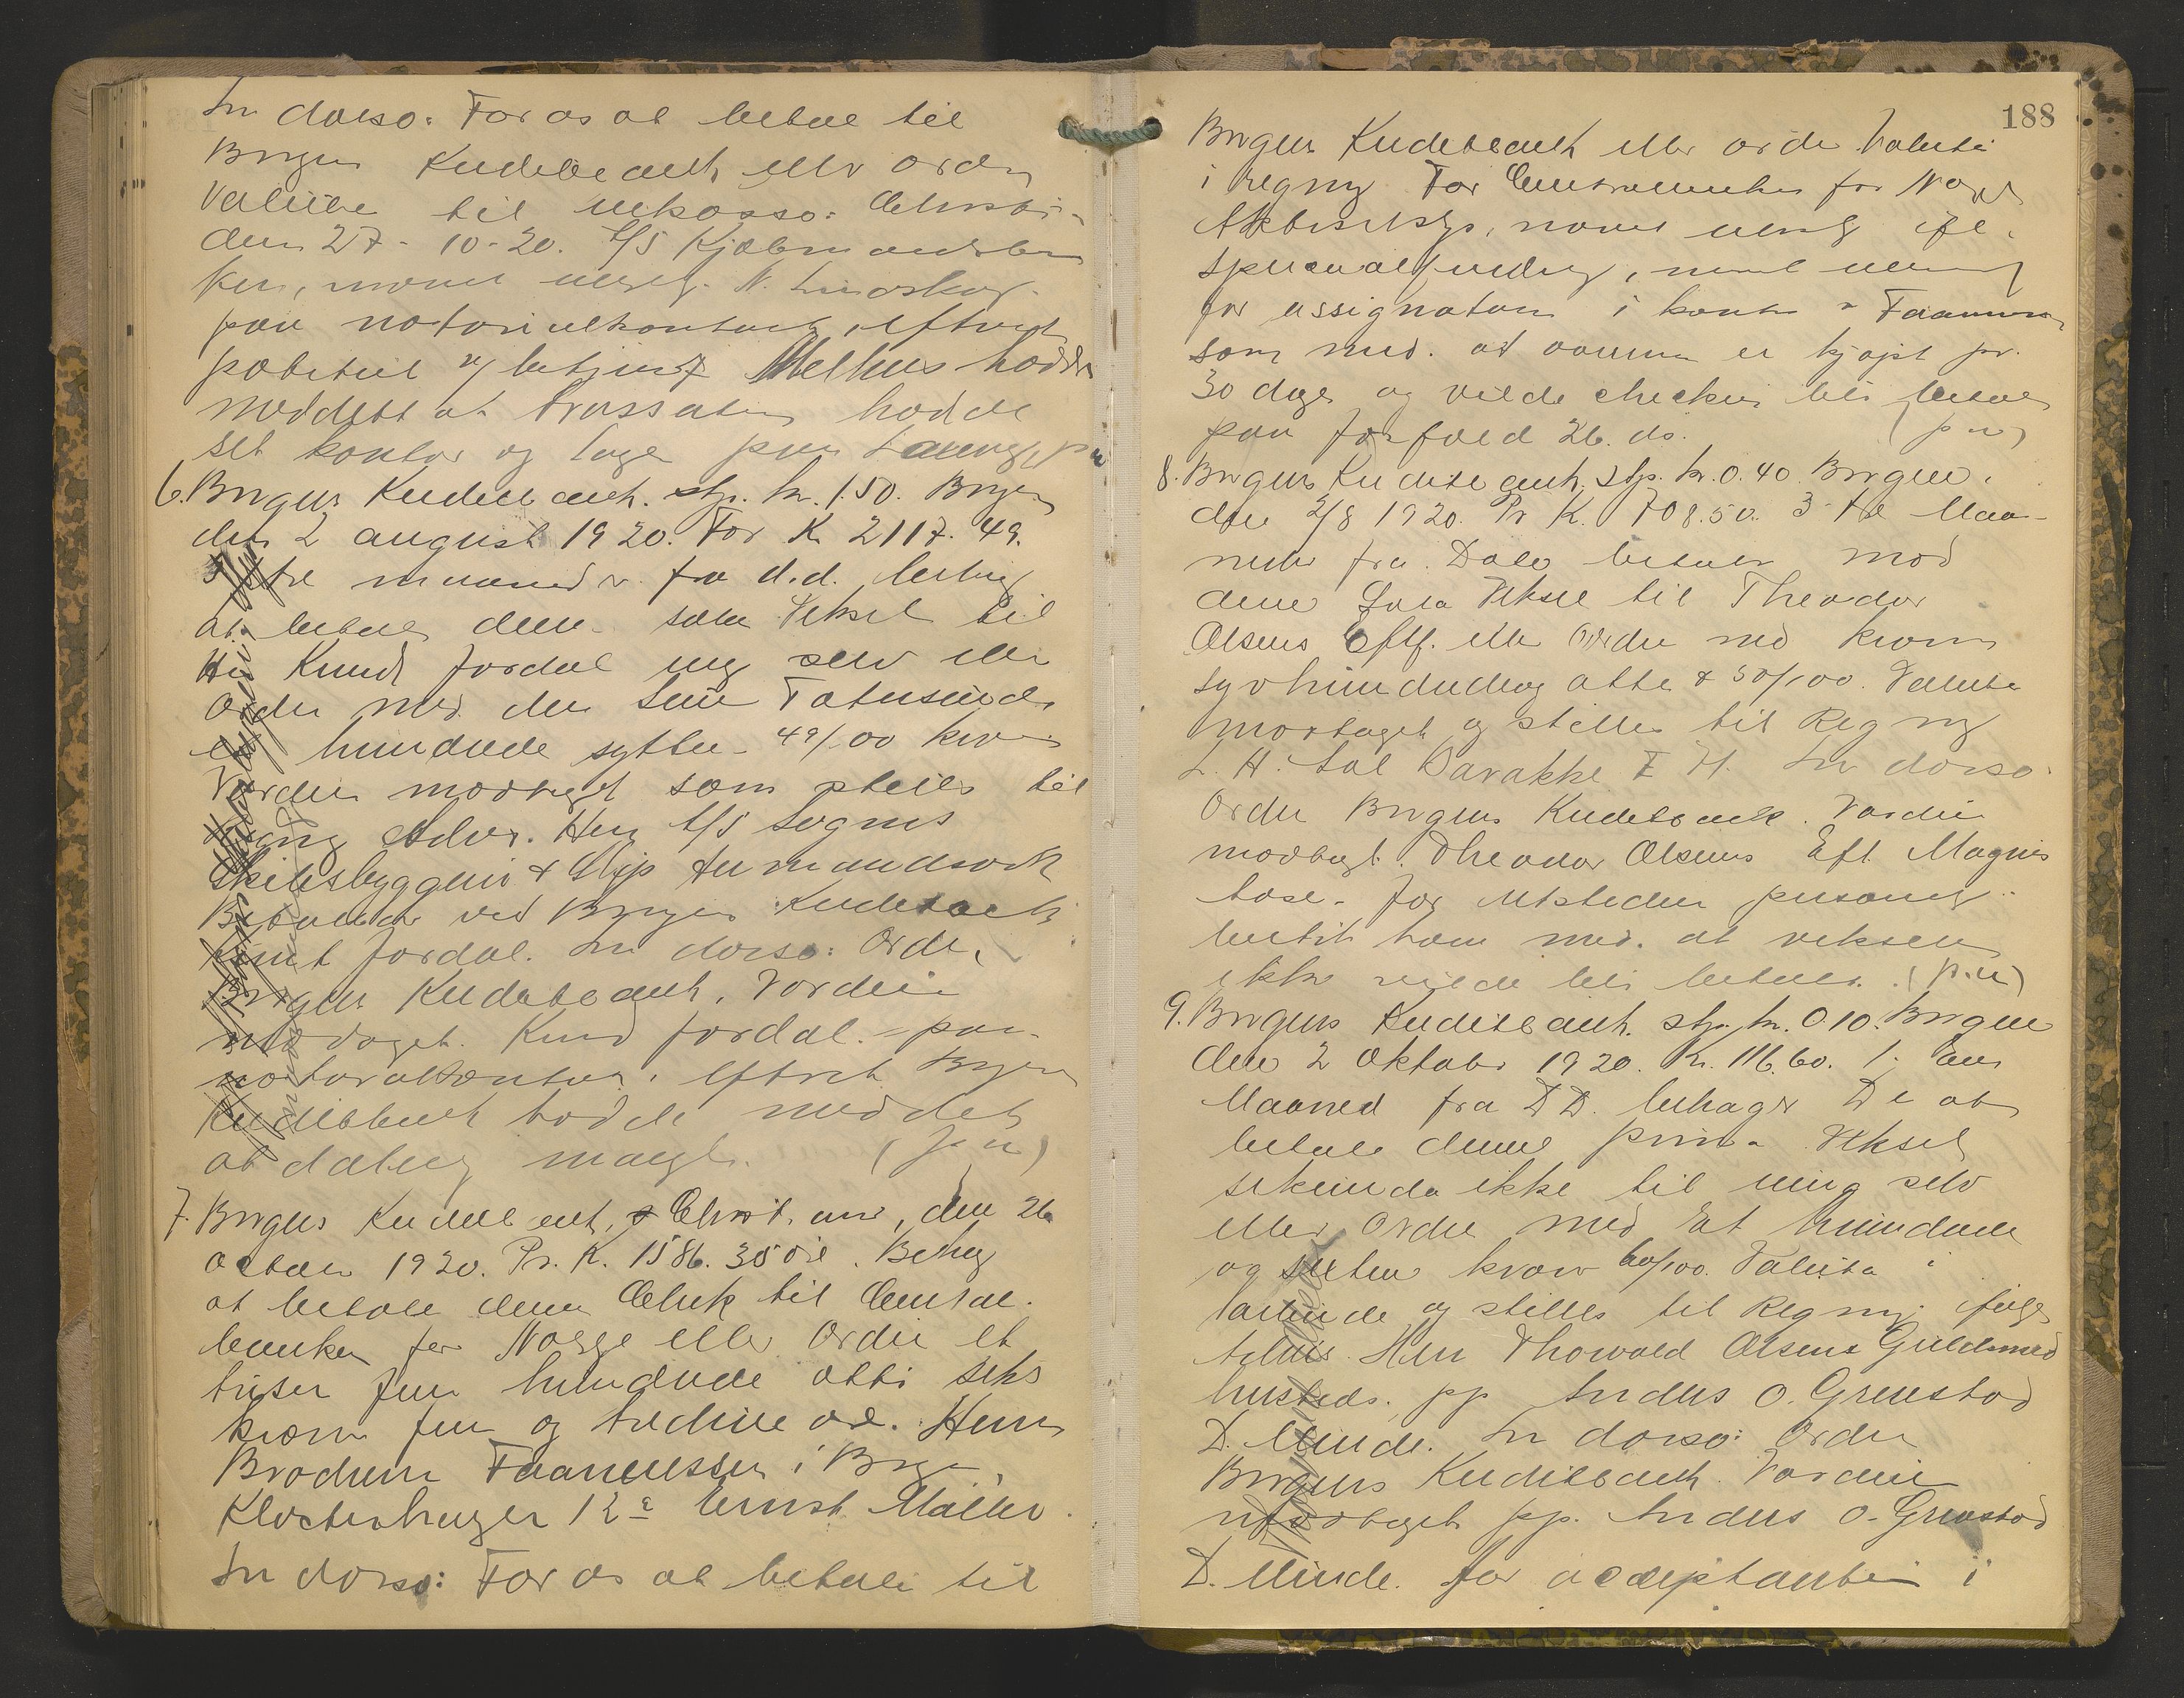 In dorso: For os at betal til
Bergens Kreditbank eller ordre
Valuta til inkasso. Christi-
den 27-10-20. A/S Kjøbmandsban
ken,
paa notarialkontoret, eftirat
politibetjent Melhus hadde
meddelt at trassaten hadde
set kontor og lager paa
6. Bergens Kreditbank. stp. kr. 1.50. Bergen
den 2 august 1920. For K. 2117.49.
3 tre maaneder fra d.d. behag
at betale denne sola veksel til
Hr Knud Jordal mig selv eller
Ordre med den Sum Totusinde
et hundrede sytten 49/100 kroner
Værdien modtaget som stilles til
regning Advis. Herr A/S Sogns
Skibsbyggeri & Slip
Betalbar ved Bergens Kreditbank
Knut Jordal. In dorso: Ordre
Bergens Kreditbank, Værdien
modtaget. Knud Jordal. paa
notarialkontoret, eftirat Bergens
Kreditbank hadde meddelt
at dækning mangler. (p.u)
7. Bergens Kreditbank, Christiania, den 26
october 1920. Pr. K. 1586.35 øre. Behag
at betale denne Check til Central-
banken for Norge eller Ordre et
tusen fem hundrede otti seks
kroner fem og tredive øre. Herrer
Brødrene Faannessen i Bergen
Klosterhaugen 12a Ernst Møller.
In dorso: For os at betale til
188
Bergens Kreditbank eller ordre Valuta
i regning For Centralbanken for Norge
Aktieselskap,
for assignaten i kontor
som med. at varerne er kjøpt pr.
30 dage og vilde checken bli betalt
paa forfald 26. ds. (p.u)
8. Bergens Kreditbank. stp. kr. 0.40 Bergen.
den 2/8 1920. Pr K. 708.50. 3 tre Maa-
neder fra Dato betaler mod
denne Sola Veksel til Theodor
Olsens Eftf. eller Ordre med kroner
syvhundredeog otte & 50/100. Valuta
modtaget og stilles til Regning
L. H. Sal Barakke I H. In dorso:
Ordre Bergens Kreditbank. Værdien
modtaget. Theodor Olsens Eft. Magnis
bose. for utstederen personlig
bertil ham med. at vekselen
ikke vilde bli betalt. (p.u)
9. Bergens Kreditbank. stp. kr. 0.10. Bergen
den 2 Oktober 1920. Kr. 116.60. 1. Een
Maaned fra D D. behager De at
betale denne prima Veksel
sekunda ikke til mig selv
eller Ordre med Et hundrede
og seksten kroner 60/100. Valuta i
og stilles til Regning ifølge
Advis. Herr Thorvald Olsens Guldsmed
hersteds. pp Anders O. Grenstad
D. Minde. In dorso: Ordre
Bergens Kreditbank. Værdien
modtaget pp. Anders O. Grenstad
D. Minde. for acceptanten i